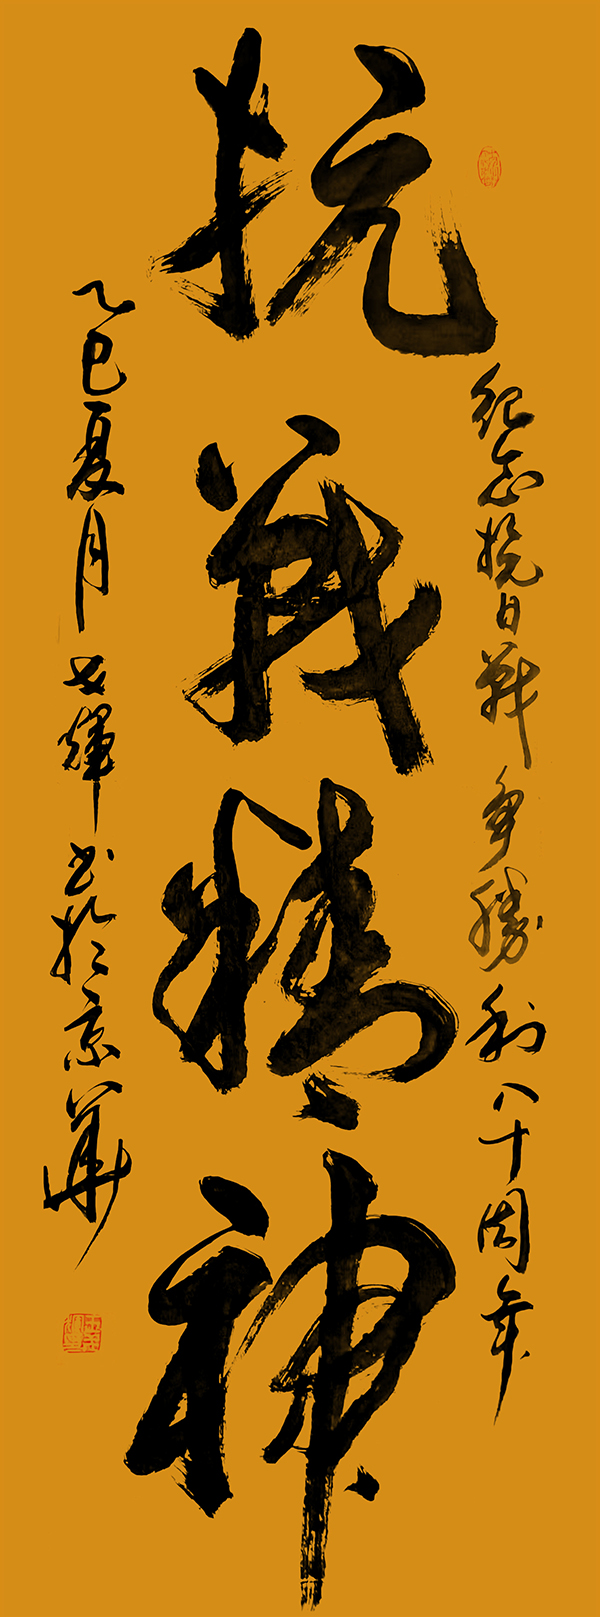 紀念抗日戰爭勝利八十周年
抗戰精神
乙巳夏月世輝书於京華